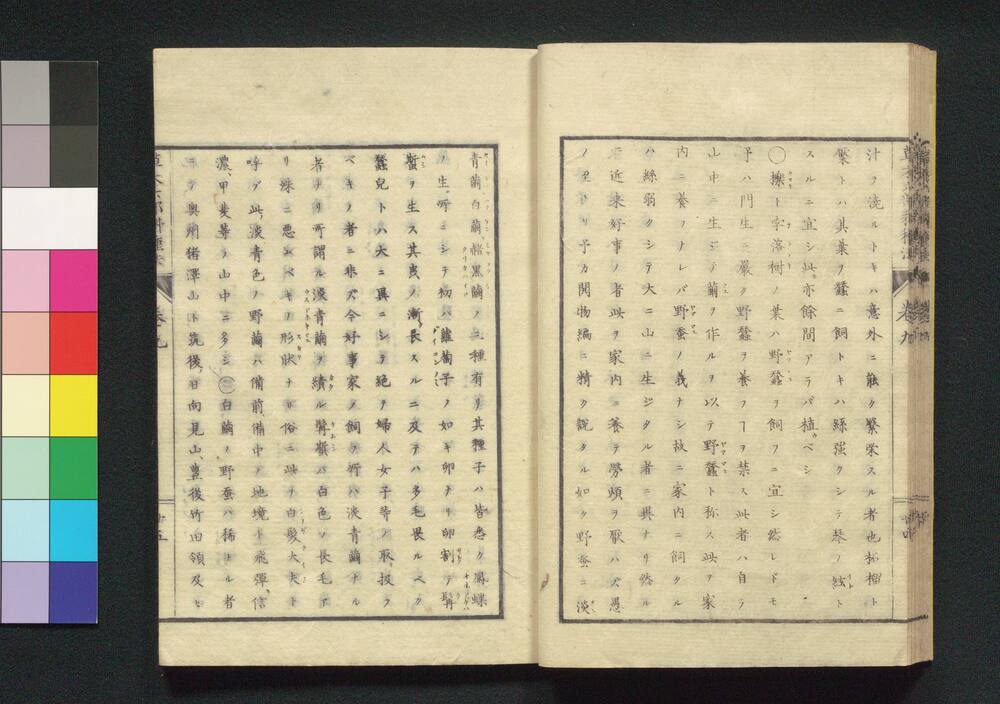 汁ヲ澆ルトキハ意外ニ能ク繁栄スル者也柘榴ト
繋トハ其葉ヲ蠶ニ飼トキハ絲強クシテ琴ノ絃ト
スルニ宜シ此亦餘間アラバ植ベシ
○櫟ト字落樹ノ葉ハ野蠶ヲ飼フニ宜シ然レドモ
予ハ門生ニ嚴ク野蠶ヲ養フヿヲ禁ス此者ハ自ラ
山中ニ生ジテ繭ヲ作ルヲ以テ野蠶ト称ス此ヲ家
内ニ養フナレバ野蚕ノ義ナシ故ニ家内ニ飼タル
ハ絲弱クシテ大ニ山ニ生ジタル者ニ異ナリ然ル
ニ近来好事ノ者此ヲ家内ニ養テ勞煩ヲ厭ハズ愚
ノ至トリ予カ開物編ニ精ク説タル如ク野蚕ニ淡
青繭白繭黒繭ノ三種有リ其種子ハ皆悉ク鳳蝶
ノ生所ニシテ物ハ蘿蔔子ノ如キ卵ナリ卵割テ
蚕ヲ生ス其虫ノ漸長スルニ及テハ多毛畏ルベク
蠶兒トハ大ニ異ニシテ絶テ婦人女子等ノ取扱フ
ベキノ者ニ非ズ今好事家ノ飼フ所ハ淡青繭ナル
者ナリ所謂ル淡青繭ヲ績ル蠶ハ白色ノ長毛ア
リ殊ニ悪ムベキノ形状ナリ俗ニ此ヲ白髪大夫ト
呼ブ此淡青色ノ野繭ハ備前備中ノ地境ト飛彈信
濃甲斐等ノ山中ニ多シ○白繭ノ野蚕ハ稀トル者
ニテ奥州猪澤山ト筑後日向見山豊後竹田領及ヒ
巻九